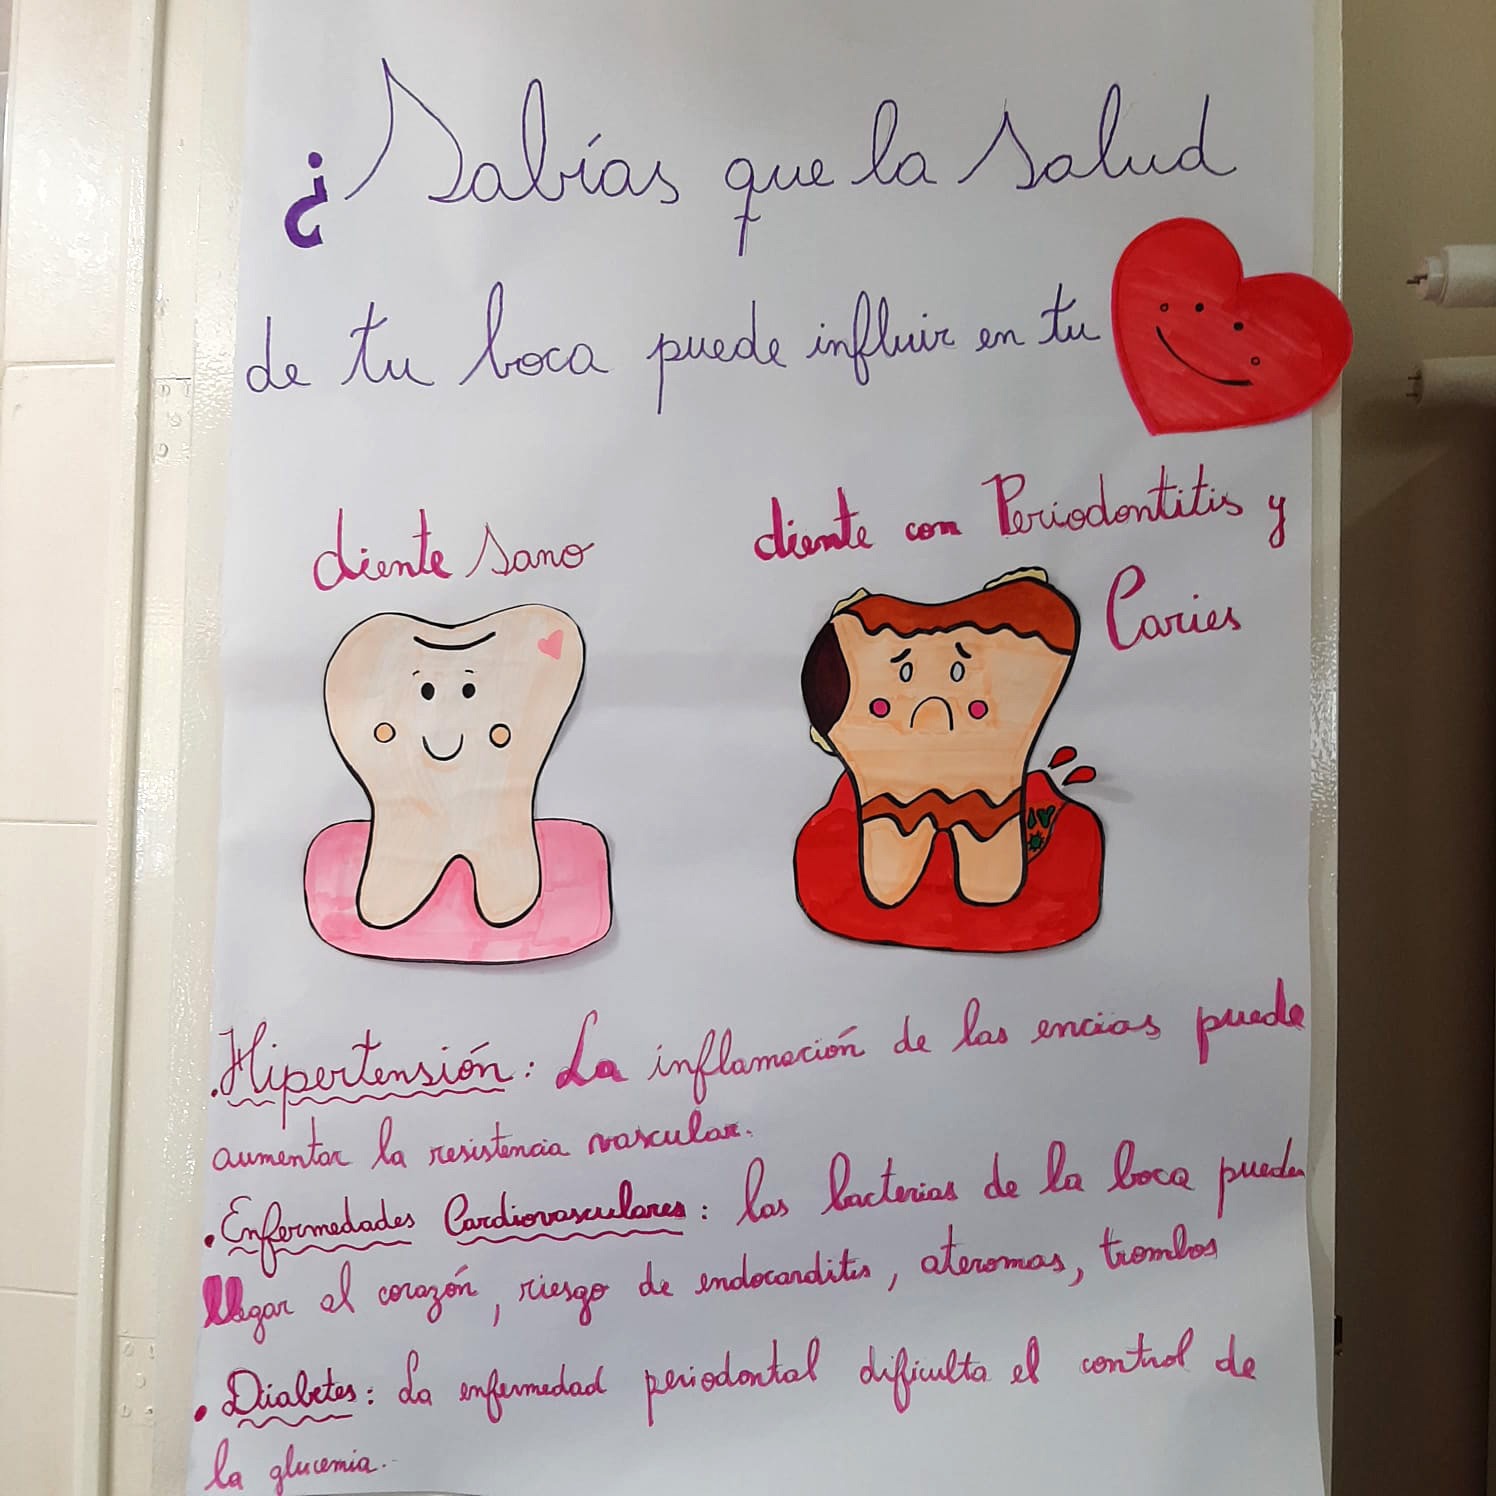 ¿Sabías que la salud
de tu boca puede influir en tu
diente sano
diente con Periodontitis y
Caries
.Hipertensión: La inflamación de las encias puede
aumentar la resistencia vascular.
.Enfermedades Cardiovasculares: las bacterias de la boca pueden
llegar al corazón, riesgo de endocarditis, ateromas, trombos
.Diabetes: La enfermedad periodontal dificulta el control de
la glucemia.